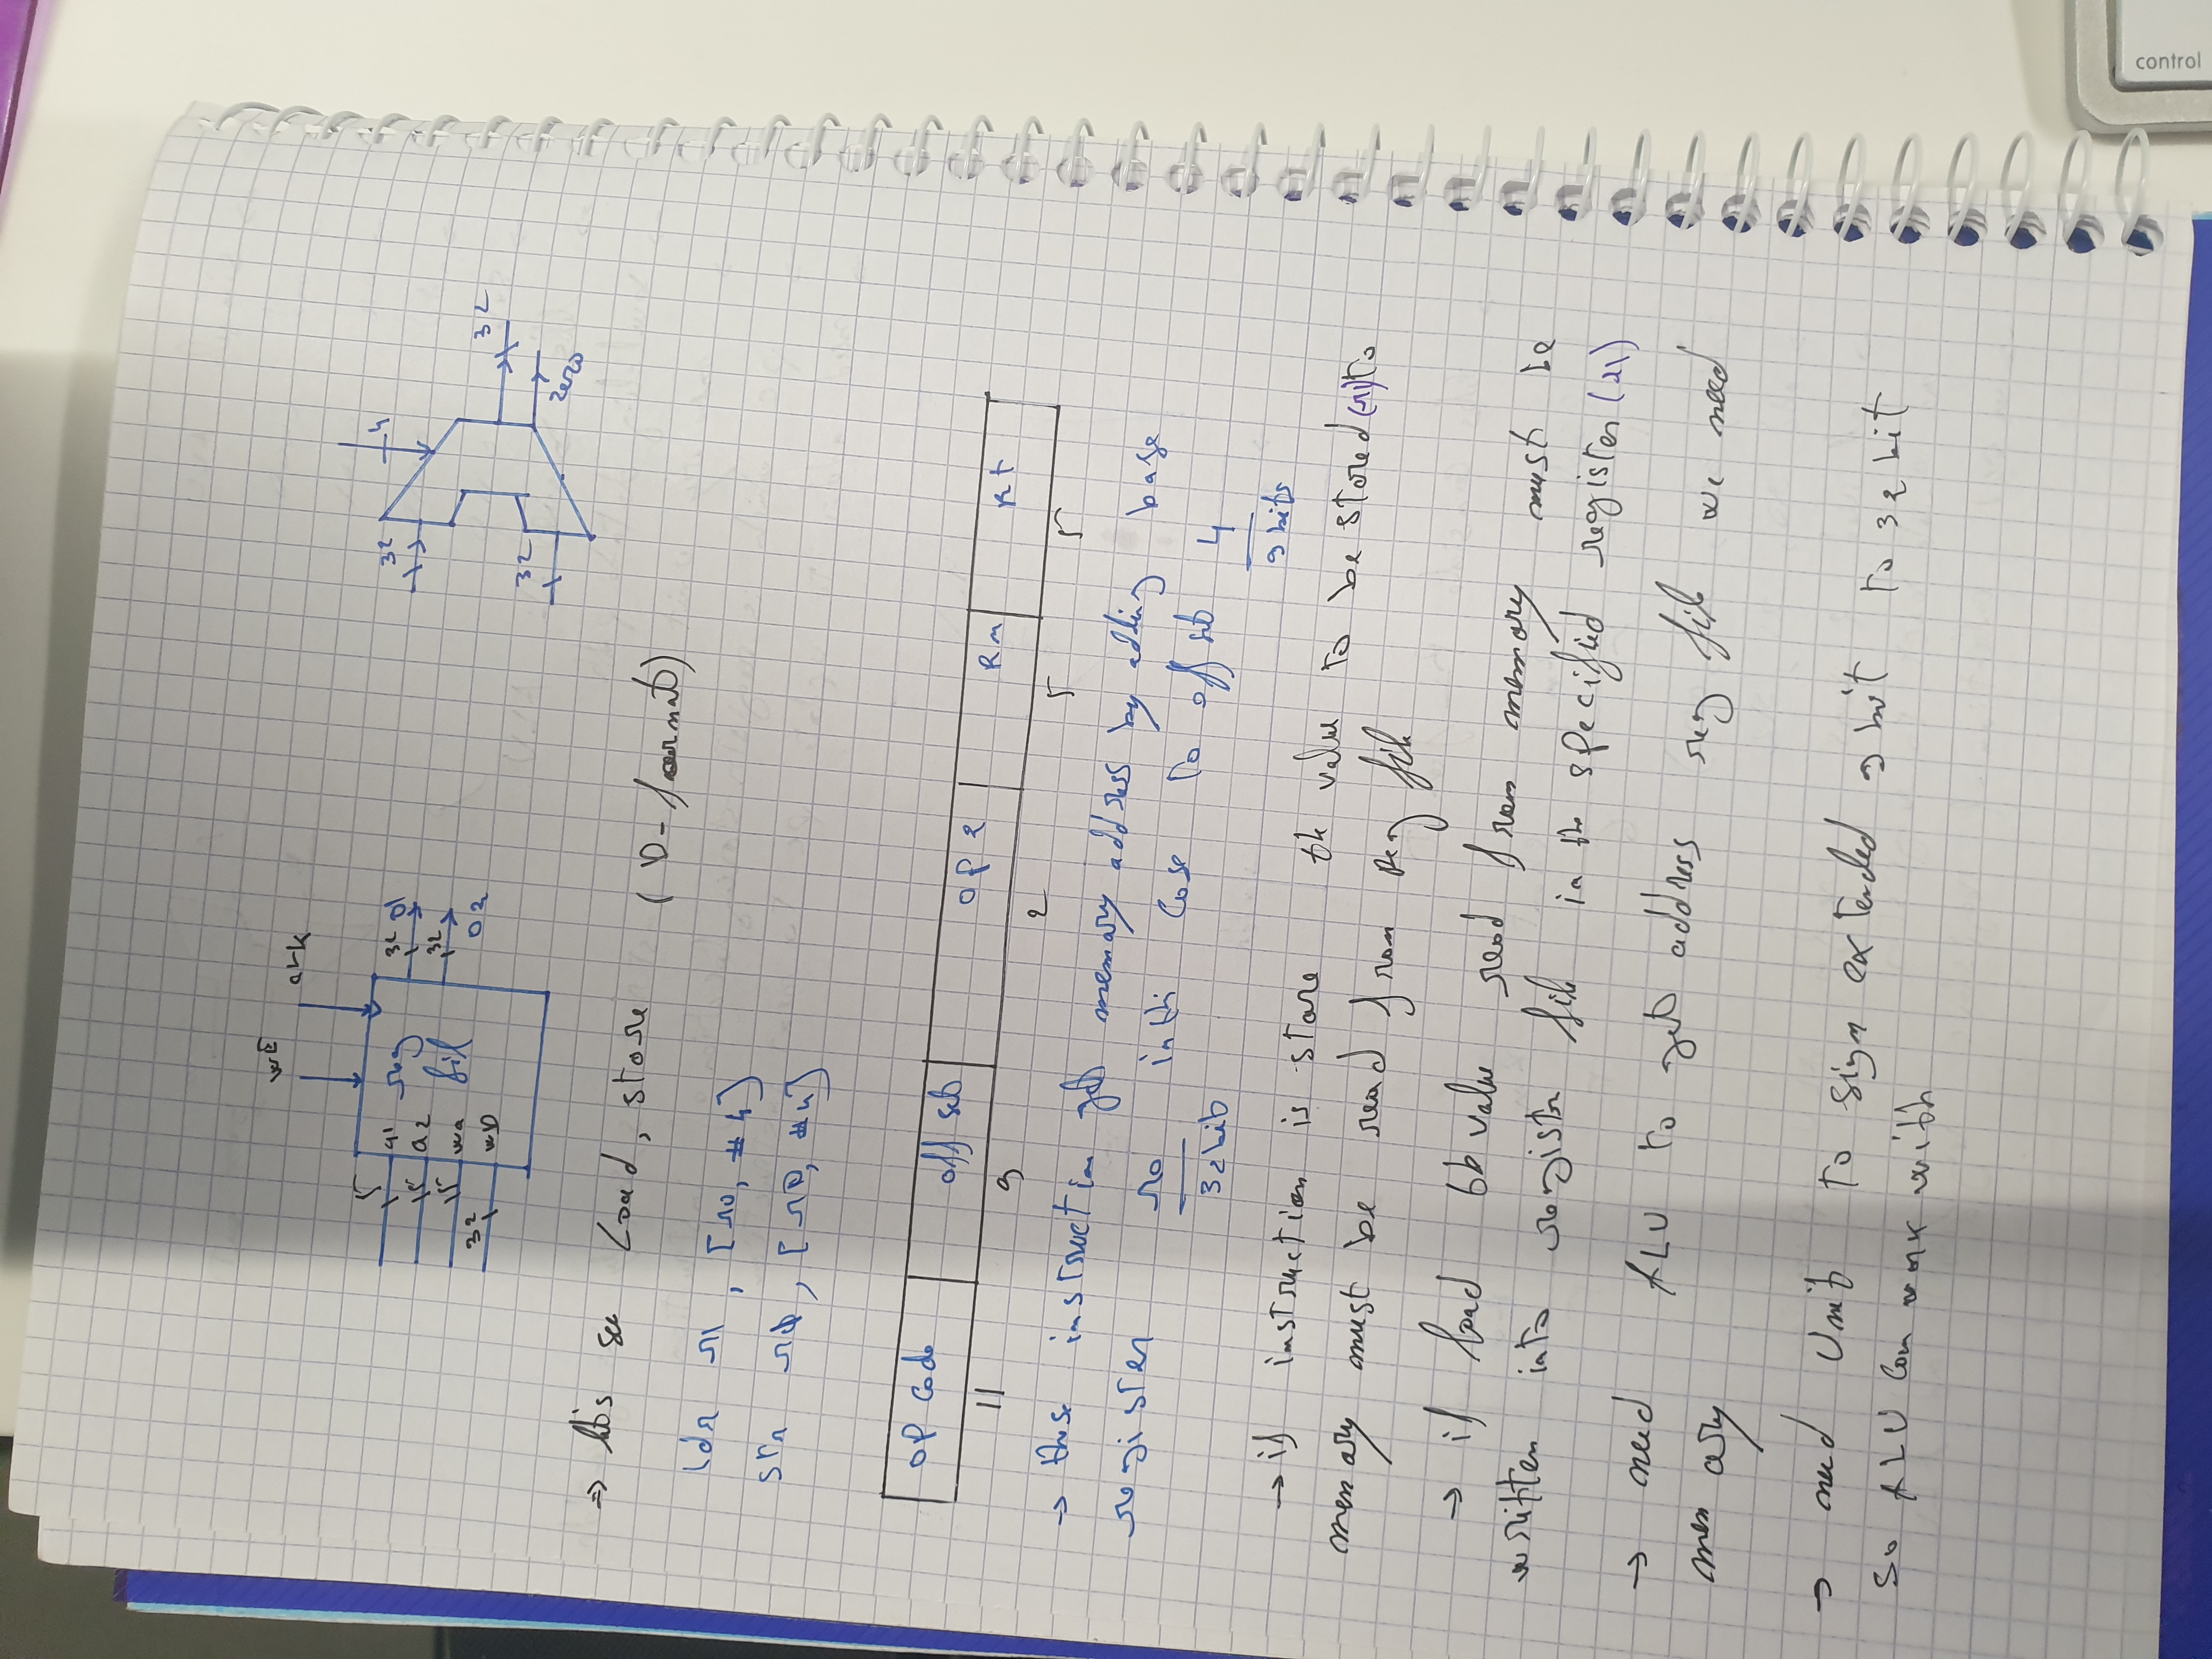 WE clk
5 a1 reg 32 O1
5 a2 file 32 O2
5 wa
32 wD
4
32
32
32
zero
=> let's see Load, store (D-format)
ldr r1, [r0, #4]
str r0, [r0, #4]
OP code offset OP2 Rn Rt
11 9 2 5 5
-> these instruction get memory address by adding base
register r0 in this case to offset 4
32 bit 9 bits
-> if instruction is store the value to be stored (r1) to
memory must be read from reg file
-> if load the value read from memory must be
written into register file in the specified register (r1)
-> need ALU to get address reg file we need
memory
-> need Unit to sign extended 9 bit to 32 bit
so ALU can work with
control